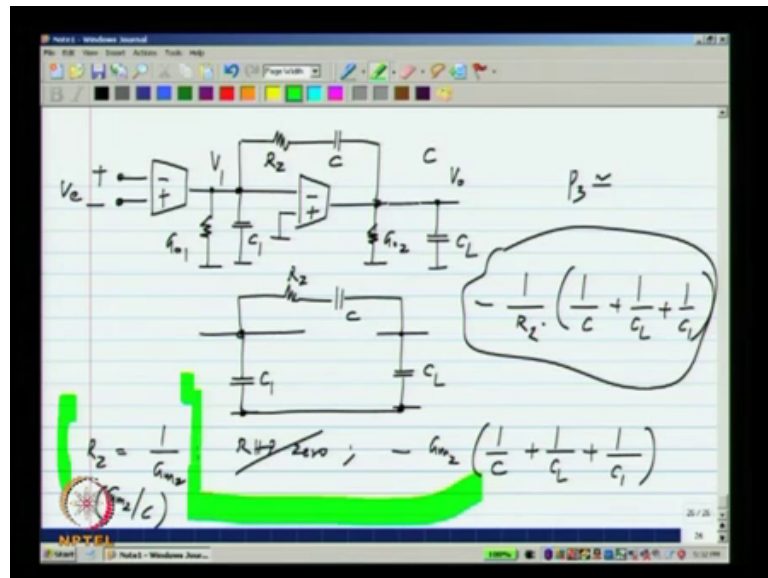 Note1 - Windows Journal
File Edit View Insert Actions Tools Help
Page Width
B I
R₂ C C
V₁ V₀ p₃ ≃
Ve + - - + - +
G₀₁ C₁ G₀₂ C_L
- 1/R₂ · (1/C + 1/C_L + 1/C₁)
R₂ C
C₁ C_L
R₂ = 1/Gm₂ : RHP zero ; - Gm₂ (1/C + 1/C_L + 1/C₁)
(Gm₂/C)
NPTEL
26
Start Note1 - Windows Jour... 100% 5:32 PM